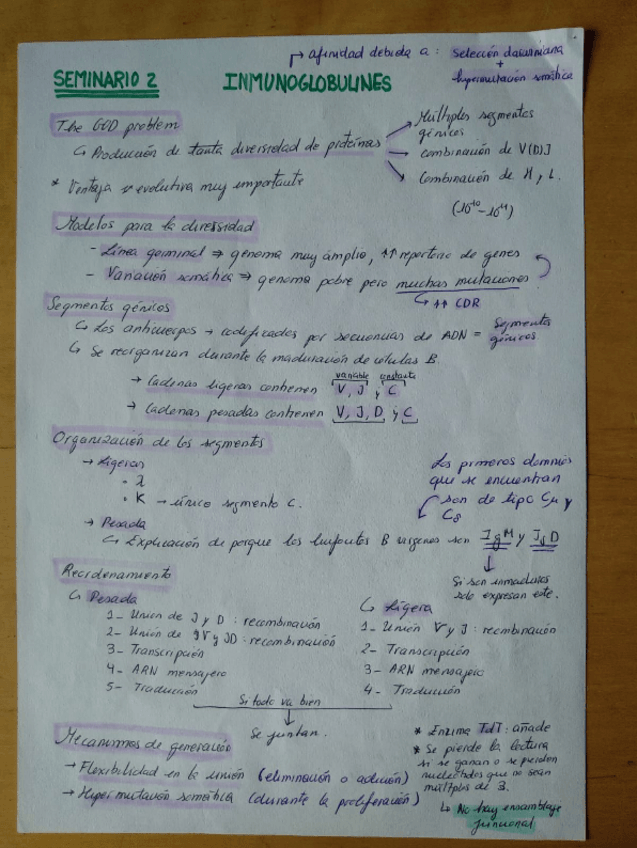 → afinidad debida a: selección darwiniana
+
hipermutación somática
SEMINARIO 2
INMUNOGLOBULINES
The GOD problem
↳ Producción de tanta diversidad de proteínas
→ Múltiples segmentos génicos
→ combinación de V(D)J
→ Combinación de H y L.
* Ventaja evolutiva muy importante
Modelos para la diversidad
- Línea germinal ⇒ genoma muy amplio, ↑↑ repertorio de genes
- Variación somática ⇒ genoma pobre pero muchas mutaciones
↳ ↑↑ CDR
Segmentos génicos
↳ Los anticuerpos → codificados por secuencias de ADN = Segmentos génicos
↳ Se reorganizan durante la maduración de células B.
variable constante
→ Cadenas ligeras contienen V, J y C
→ Cadenas pesadas contienen V, J, D y C
Organización de los segmentos
→ Ligeras
• λ
• K → único segmento C.
Los primeros dominios
que se encuentran
son de tipo Cμ y
Cδ
→ Pesada
↳ Explicación de porque los linfocitos B vírgenes son IgM y IgD
↓
Si son inmaduros
solo expresan este.
Reordenamiento
↳ Pesada
1- Unión de J y D: recombinación
2- Unión de V y JD: recombinación
3- Transcripción
4- ARN mensajero
5- Traducción
↳ Ligera
1- Unión V y J: recombinación
2- Transcripción
3- ARN mensajero
4- Traducción
Si todo va bien
↓
Se juntan.
Mecanismos de generación
→ Flexibilidad en la unión (eliminación o adición)
→ Hipermutación somática (durante la proliferación)
* Enzima TdT: añade
* Se pierde la lectura
si se ganan o se pierden
nucleótidos que no sean
múltiplos de 3.
↳ No hay ensamblaje
funcional